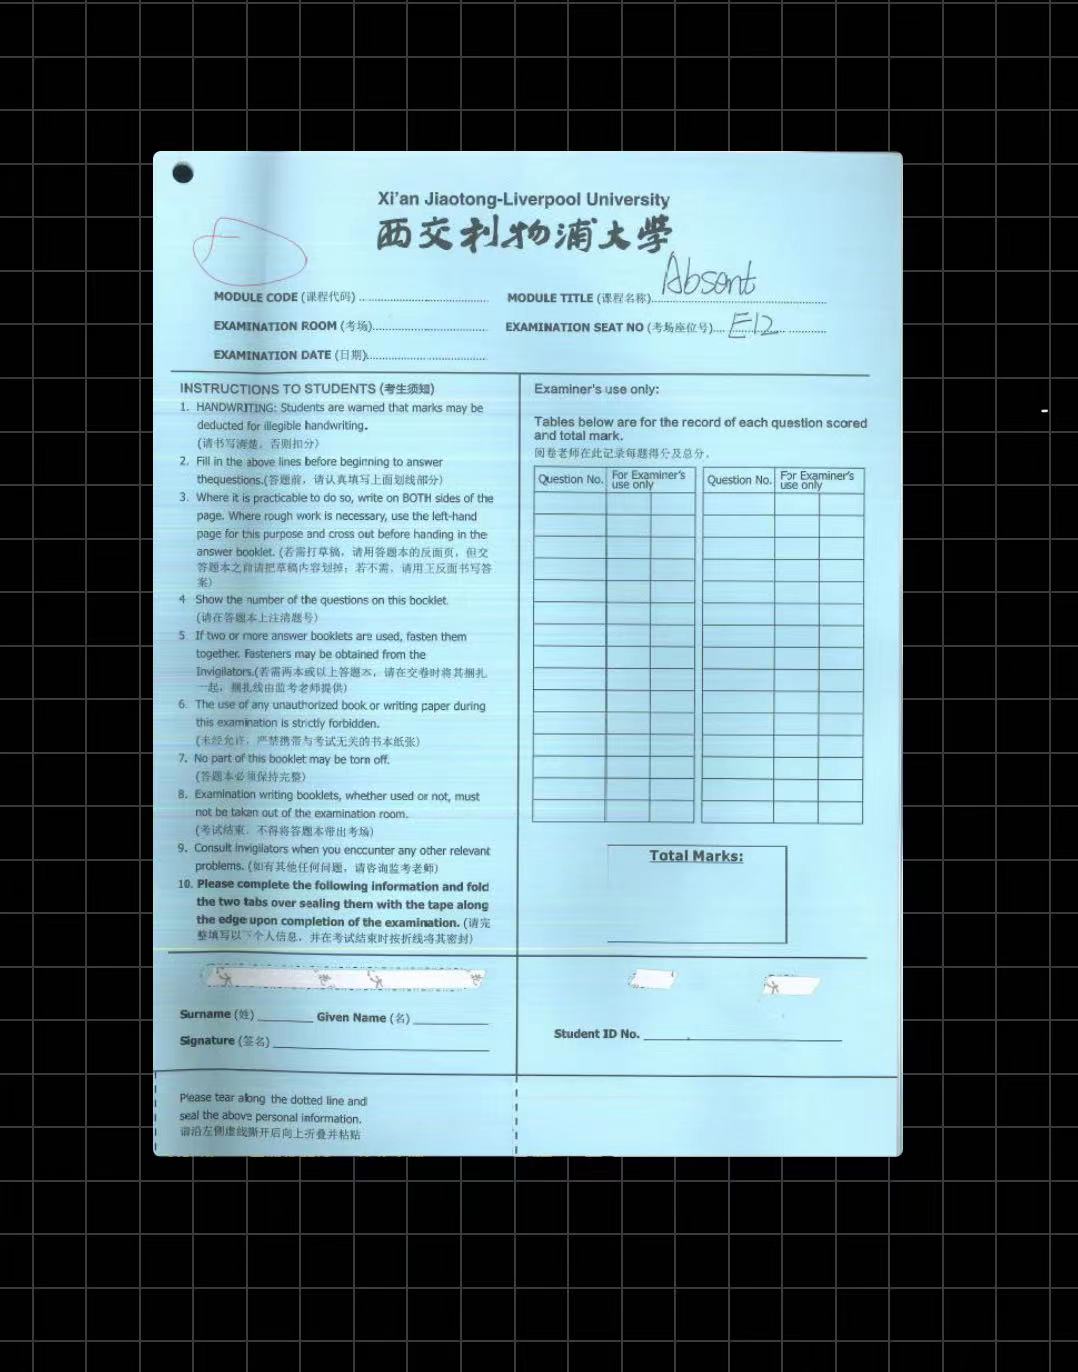 Xi'an Jiaotong-Liverpool University
西交利物浦大學
F
Absent
MODULE CODE (课程代码)
MODULE TITLE (课程名称)
EXAMINATION ROOM (考场)
EXAMINATION SEAT NO (考场座位号) E12
EXAMINATION DATE (日期)
INSTRUCTIONS TO STUDENTS (考生须知)
1. HANDWRITING: Students are warned that marks may be
deducted for illegible handwriting.
(请书写清楚，否则扣分)
2. Fill in the above lines before beginning to answer
thequestions.(答题前，请认真填写上面划线部分)
3. Where it is practicable to do so, write on BOTH sides of the
page. Where rough work is necessary, use the left-hand
page for this purpose and cross out before handing in the
answer booklet. (若需打草稿，请用答题本的反面页，但交
答题本之前请把草稿内容划掉；若不需，请用正反面书写答
案)
4 Show the number of the questions on this booklet.
(请在答题本上注清题号)
5 If two or more answer booklets are used, fasten them
together. Fasteners may be obtained from the
Invigilators.(若需两本或以上答题本，请在交卷时将其捆扎
一起，捆扎线由监考老师提供)
6. The use of any unauthorized book or writing paper during
this examination is strictly forbidden.
(未经允许，严禁携带与考试无关的书本纸张)
7. No part of this booklet may be torn off.
(答题本必须保持完整)
8. Examination writing booklets, whether used or not, must
not be taken out of the examination room.
(考试结束，不得将答题本带出考场)
9. Consult invigilators when you encounter any other relevant
problems. (如有其他任何问题，请咨询监考老师)
10. Please complete the following information and fold
the two tabs over sealing them with the tape along
the edge upon completion of the examination. (请完
整填写以下个人信息，并在考试结束时按折线将其密封)
Examiner's use only:
Tables below are for the record of each question scored
and total mark.
阅卷老师在此记录每题得分及总分。
Question No. For Examiner's use only Question No. For Examiner's use only
Total Marks:
Surname (姓) Given Name (名)
Signature (签名)
Student ID No.
Please tear along the dotted line and
seal the above personal information.
请沿左侧虚线撕开后向上折叠并粘贴